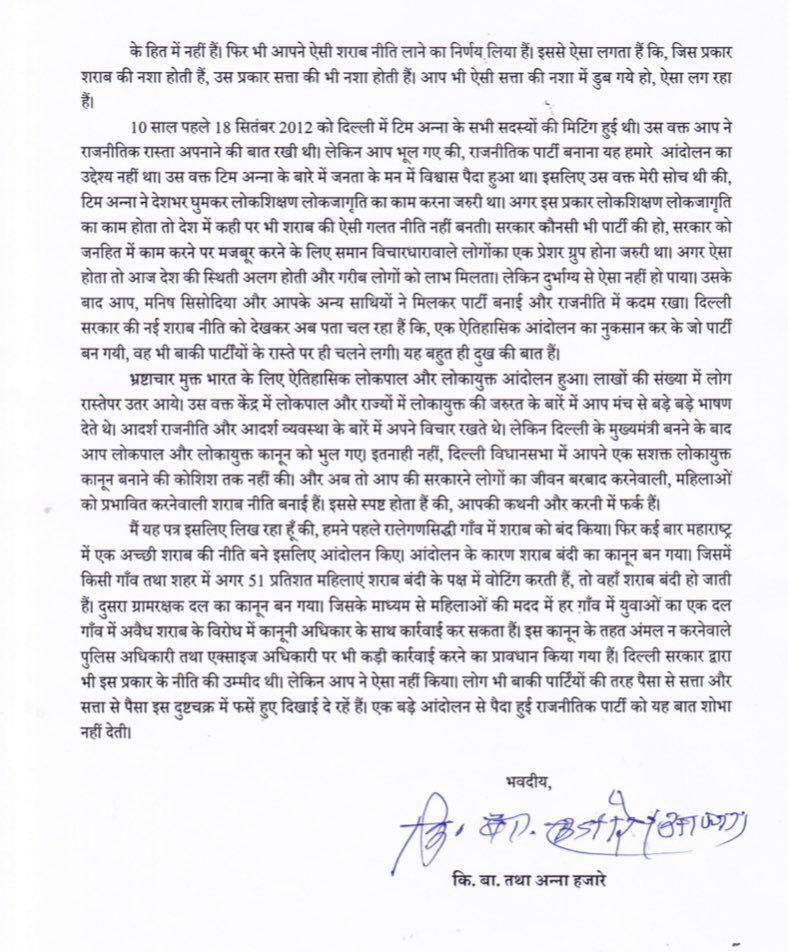 के हित में नहीं हैं। फिर भी आपने ऐसी शराब नीति लाने का निर्णय लिया हैं। इससे ऐसा लगता हैं कि, जिस प्रकार
शराब की नशा होती हैं, उस प्रकार सत्ता की भी नशा होती हैं। आप भी ऐसी सत्ता की नशा में डुब गये हो, ऐसा लग रहा
हैं।
10 साल पहले 18 सितंबर 2012 को दिल्ली में टिम अन्ना के सभी सदस्यों की मिटिंग हुई थी। उस वक्त आप ने
राजनीतिक रास्ता अपनाने की बात रखी थी। लेकिन आप भूल गए की, राजनीतिक पार्टी बनाना यह हमारे आंदोलन का
उद्देश्य नहीं था। उस वक्त टिम अन्ना के बारे में जनता के मन में विश्वास पैदा हुआ था। इसलिए उस वक्त मेरी सोच थी की,
टिम अन्ना ने देशभर घुमकर लोकशिक्षण लोकजागृति का काम करना जरुरी था। अगर इस प्रकार लोकशिक्षण लोकजागृति
का काम होता तो देश में कही पर भी शराब की ऐसी गलत नीति नहीं बनती। सरकार कौनसी भी पार्टी की हो, सरकार को
जनहित में काम करने पर मजबूर करने के लिए समान विचारधारावाले लोगोंका एक प्रेशर ग्रुप होना जरुरी था। अगर ऐसा
होता तो आज देश की स्थिती अलग होती और गरीब लोगों को लाभ मिलता। लेकिन दुर्भाग्य से ऐसा नहीं हो पाया। उसके
बाद आप, मनिष सिसोदिया और आपके अन्य साथियों ने मिलकर पार्टी बनाई और राजनीति में कदम रखा। दिल्ली
सरकार की नई शराब नीति को देखकर अब पता चल रहा हैं कि, एक ऐतिहासिक आंदोलन का नुकसान कर के जो पार्टी
बन गयी, वह भी बाकी पार्टीयों के रास्ते पर ही चलने लगी। यह बहुत ही दुख की बात हैं।
भ्रष्टाचार मुक्त भारत के लिए ऐतिहासिक लोकपाल और लोकायुक्त आंदोलन हुआ। लाखों की संख्या में लोग
रास्तेपर उतर आये। उस वक्त केंद्र में लोकपाल और राज्यों में लोकायुक्त की जरुरत के बारें में आप मंच से बड़े बड़े भाषण
देते थे। आदर्श राजनीति और आदर्श व्यवस्था के बारें में अपने विचार रखते थे। लेकिन दिल्ली के मुख्यमंत्री बनने के बाद
आप लोकपाल और लोकायुक्त कानून को भुल गए। इतनाही नहीं, दिल्ली विधानसभा में आपने एक सशक्त लोकायुक्त
कानून बनाने की कोशिश तक नहीं की। और अब तो आप की सरकारने लोगों का जीवन बरबाद करनेवाली, महिलाओं
को प्रभावित करनेवाली शराब नीति बनाई हैं। इससे स्पष्ट होता हैं की, आपकी कथनी और करनी में फर्क हैं।
मैं यह पत्र इसलिए लिख रहा हूँ की, हमने पहले रालेगणसिद्धी गाँव में शराब को बंद किया। फिर कई बार महाराष्ट्र
में एक अच्छी शराब की नीति बने इसलिए आंदोलन किए। आंदोलन के कारण शराब बंदी का कानून बन गया। जिसमें
किसी गाँव तथा शहर में अगर 51 प्रतिशत महिलाएं शराब बंदी के पक्ष में वोटिंग करती हैं, तो वहाँ शराब बंदी हो जाती
हैं। दुसरा ग्रामरक्षक दल का कानून बन गया। जिसके माध्यम से महिलाओं की मदद में हर गाँव में युवाओं का एक दल
गाँव में अवैध शराब के विरोध में कानूनी अधिकार के साथ कार्रवाई कर सकता हैं। इस कानून के तहत अंमल न करनेवाले
पुलिस अधिकारी तथा एक्साइज अधिकारी पर भी कड़ी कार्रवाई करने का प्रावधान किया गया हैं। दिल्ली सरकार द्वारा
भी इस प्रकार के नीति की उम्मीद थी। लेकिन आप ने ऐसा नहीं किया। लोग भी बाकी पार्टियों की तरह पैसा से सत्ता और
सत्ता से पैसा इस दुष्टचक्र में फसें हुए दिखाई दे रहें हैं। एक बड़े आंदोलन से पैदा हुई राजनीतिक पार्टी को यह बात शोभा
नहीं देती।
भवदीय,
कि. बा. हजारे (अण्णा)
कि. बा. तथा अन्ना हजारे